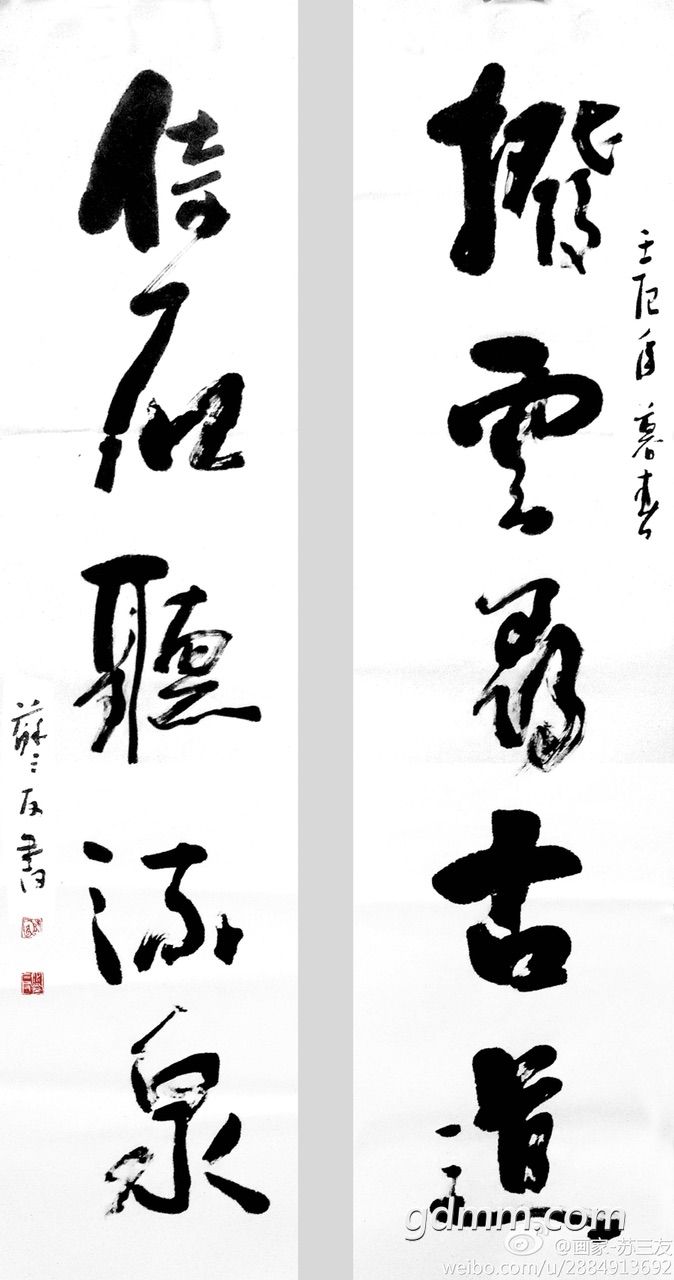 撥雲尋古道
壬辰年暮春
倚石聽流泉
蘇三友書
gdmm.com
@画家-苏三友
weibo.com/u/2884913692